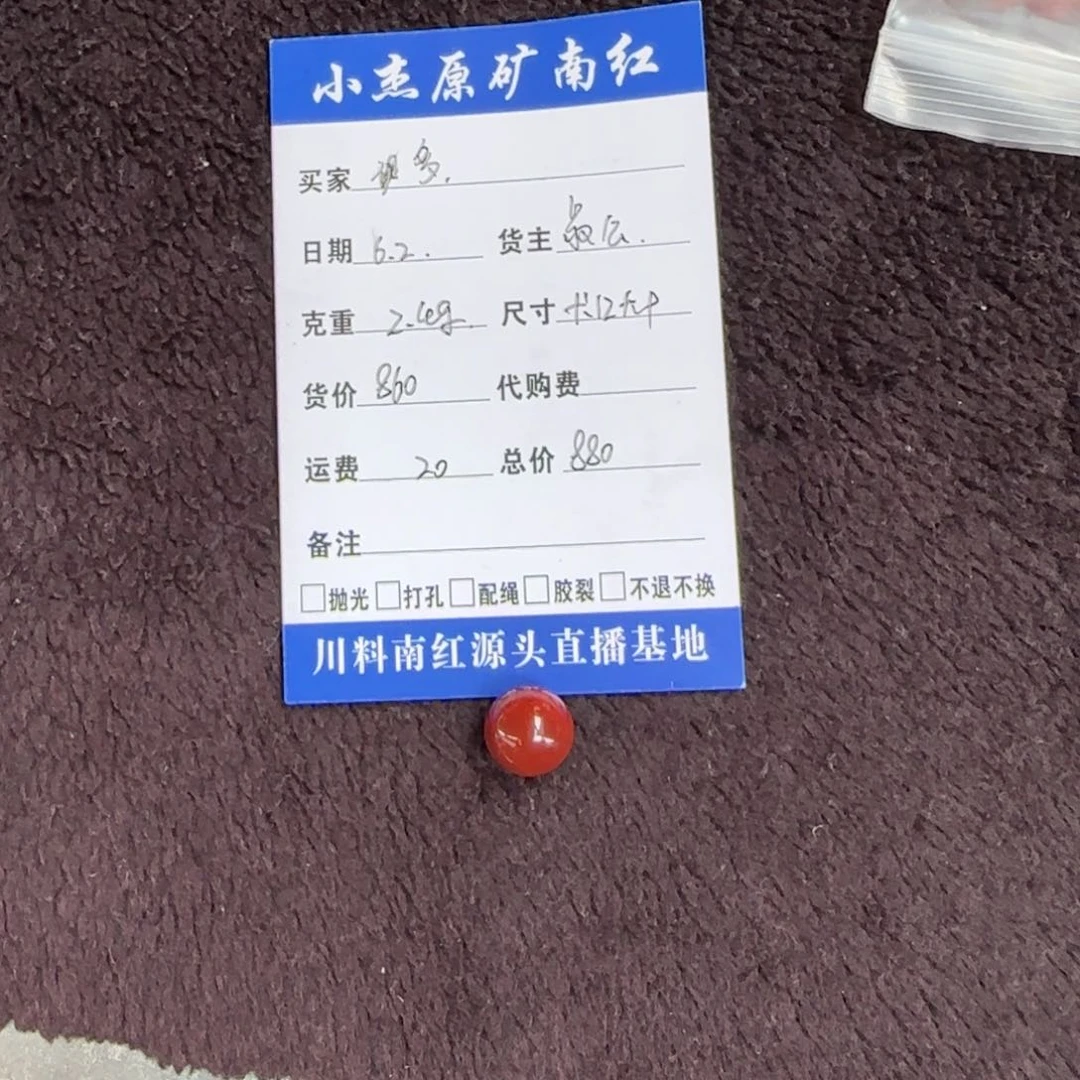 小杰原矿南红
买家
日期 6.2. 货主
克重 2.4g. 尺寸
货价 860 代购费
运费 20 总价 880
备注
□抛光□打孔□配绳□胶裂□不退不换
川料南红源头直播基地